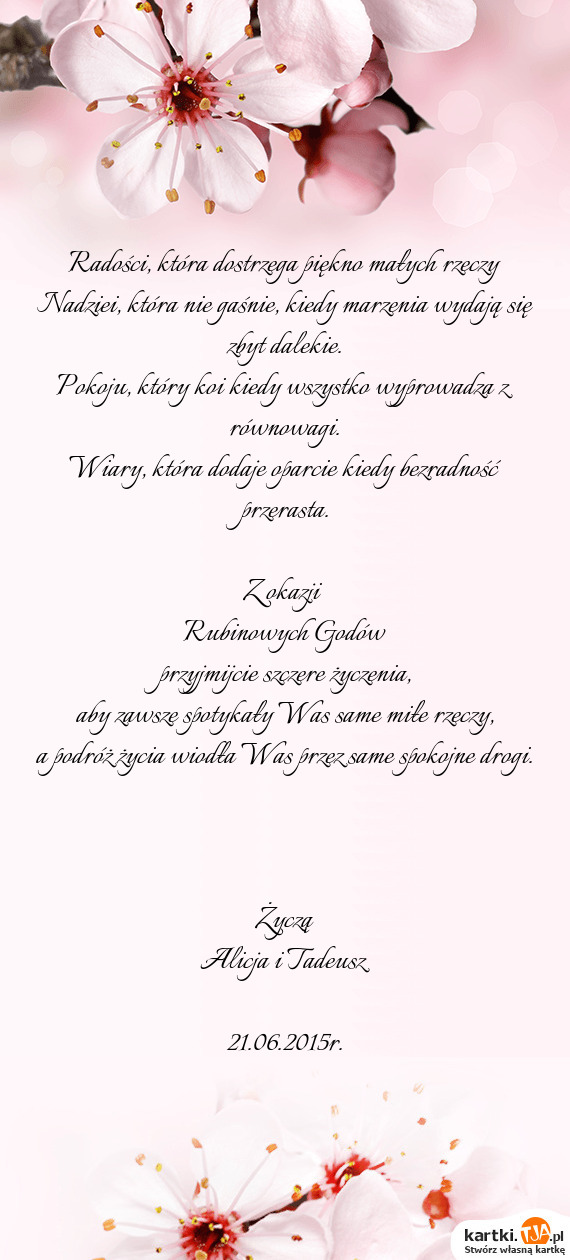 Radości, która dostrzega piękno małych rzeczy
Nadziei, która nie gaśnie, kiedy marzenia wydają się
zbyt dalekie.
Pokoju, który koi kiedy wszystko wyprowadza z
równowagi.
Wiary, która dodaje oparcie kiedy bezradność
przerasta.
Z okazji
Rubinowych Godów
przyjmijcie szczere życzenia,
aby zawszę spotykały Was same miłe rzęczy,
a podróż życia wiodła Was przez same spokojne drogi.
Życzą
Alicja i Tadeusz
21.06.2015r.
kartki.TJA.pl
Stwórz własną kartkę